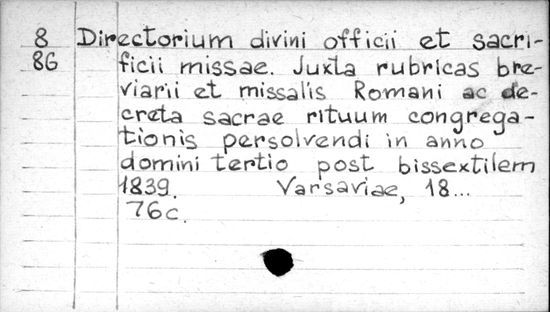 8 Directorium divini officii et sacri-
86 ficii missae. Juxta rubricas bre-
viarii et missalis Romani ac de-
creta sacrae rituum congrega-
tionis persolvendi in anno
domini tertio post bissextilem
1839. Varsaviae, 18...
76c.